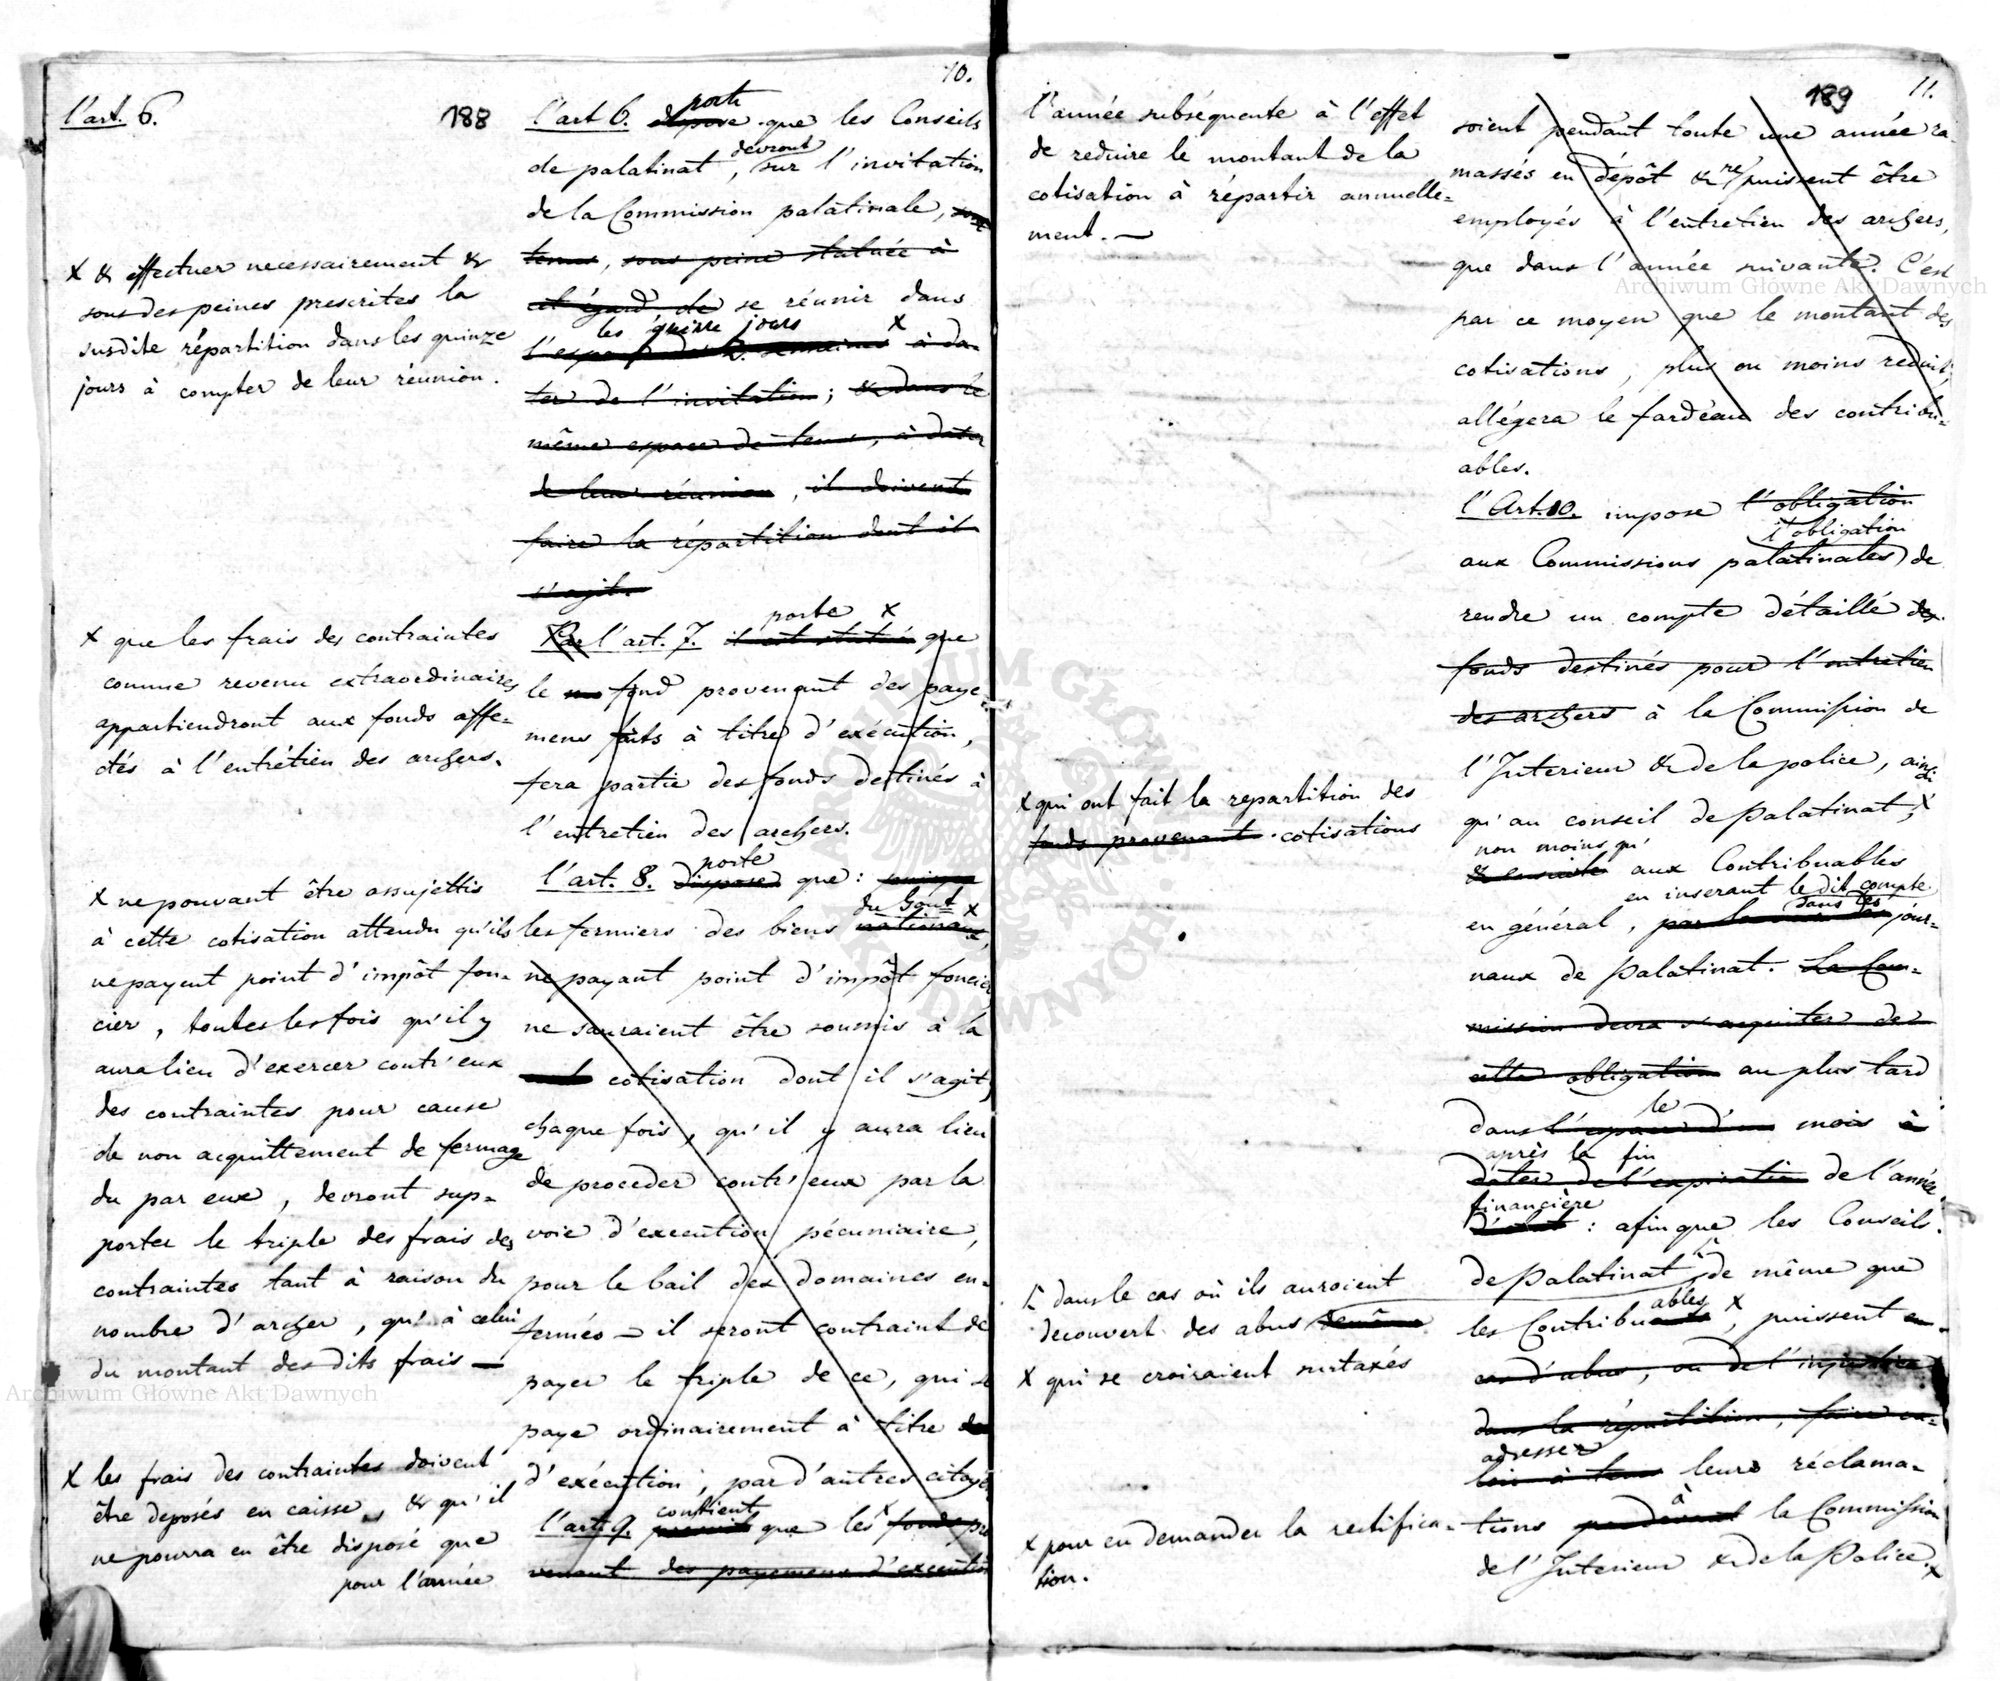 10.
188
l'art. 6.
X & effectuer necessairement &
sous des peines prescrites la
susdite répartition dans les quinze
jours à compter de leur réunion.
X que les frais des contraintes
comme revenu extraordinaires
appartiendront aux fonds affe=
ctés à l'entrétien des archers.
X ne pouvant être assujettis
à cette cotisation attendu qu'ils
ne payent point d'impôt fon=
cier, toutes les fois qu'il y
aura lieu d'exercer contr'eux
des contraintes pour cause
de non acquittement de fermage
du par eux, devront sup=
porter le triple des frais des
contraintes tant à raison du
nombre d'archer, qu'à celui
du montant des dits frais —
X les frais des contraintes doivent
être deposés en caisse, & qu'il
ne pourra en être disposé que
pour l'année
porte
l'art 6. dispose que les Conseils
devront
de palatinat, sur l'invitation
de la Commission palatinale,
tenus, sous peine statuée à
cet égard de se réunir dans
les quinze jours X
l'espace de 2. semaines à da=
ter de l'invitation; & dans le
même espace de tems, à dater
de leur réunion, il doivent
faire la répartition dont il
s'agit.
porte X
Par l'art. 7. il est statué que
le fond provenant des paye=
mens faits à titre d'exécution,
fera partie des fonds destinés à
l'entretien des archers.
porte
l'art. 8. dispose que:
du Gout X
les fermiers des biens nationaux,
ne payant point d'impôt foncier
ne sauraient être soumis à la
cotisation dont il s'agit,
chaque fois, qu'il y aura lieu
de proceder contr'eux par la
voie d'execution pécuniaire,
pour le bail des domaines en=
fermés — il seront contraint de
payer le triple de ce, qui se
paye ordinairement à titre
d'exécution, par d'autres citoye
contient X
l'art 9. que les fonds pro
venant des payemens d'execution
189
11.
l'année subséquente à l'effet
de reduire le montant de la
cotisation à répartir annuelle=
ment. —
X qui ont fait la repartition des
fonds provenant cotisations
dans le cas où ils auroient
decouvert des abus de même
X qui se croiraient surtaxés
X pour en demander la rectifica=
tion.
soient pendant toute une année ra=
massés en dépôt & ne puissent être
employés à l'entretien des archers,
que dans l'année suivante. C'est
par ce moyen que le montant des
cotisations, plus ou moins reduit,
allégera le fardeau des contribu=
ables.
l'Art. 10. impose l'obligation
l'obligation
aux Commissions palatinales de
rendre un compte détaillé des
fonds destinés pour l'entretien
des archers à la Commission de
l'Interieur & de la police, ainsi
qu'au conseil de Palatinat, X
non moins qu'
& ensuite aux Contribuables
en inserant le dit compte
dans les
en général, par la voie des jour=
naux de Palatinat. La Com=
mission devra s'acquiter de
cette obligation au plus tard
le
dans l'espace d'un mois à
après la fin
dater de l'expiration de l'année
financière
d'etat: afin que les Conseils
de Palatinat de même que
ables X
les Contribuants, puissent en
cas d'abus, ou de l'injustice
dans la répartition, faire va=
adresser
loir à tems leurs réclama=
à
tions par devant la Commission
de l'Interieur & de la Police. X
ARCHIWUM GŁÓWNE AKT DAWNYCH
Archiwum Główne Akt Dawnych
Archiwum Główne Akt Dawnych